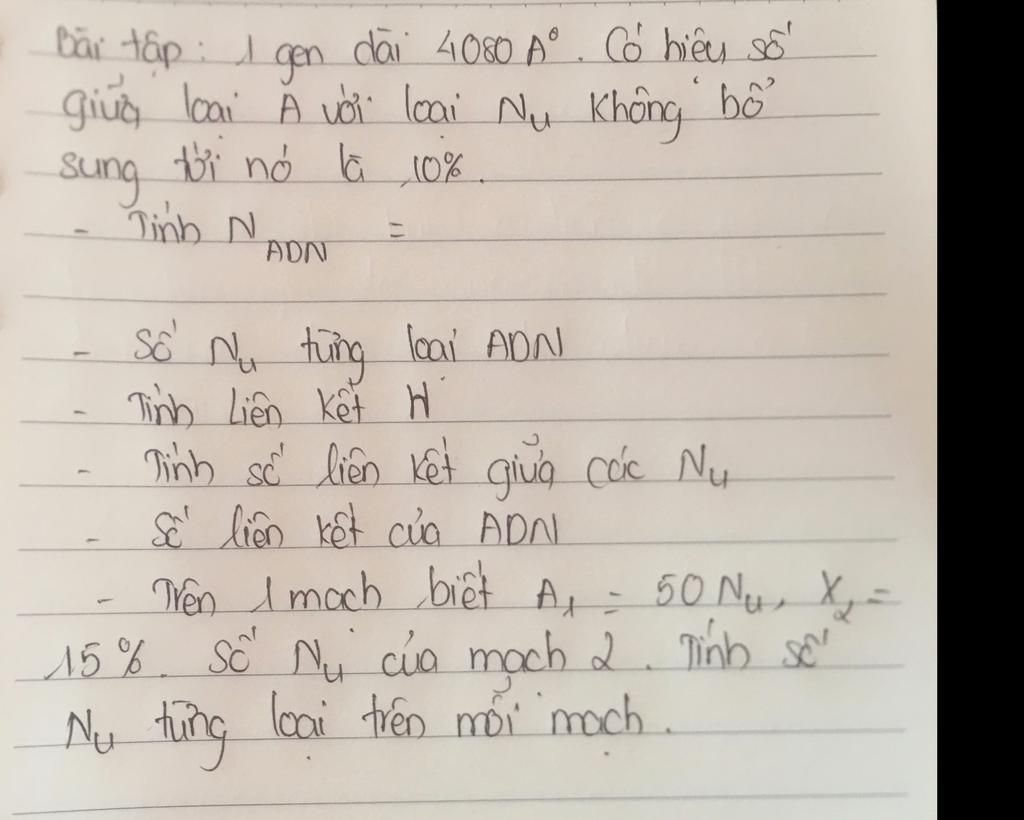 Bài tập: 1 gen dài 4080 A°. Có hiệu số
giữa loại A với loại Nu không bổ
sung tới nó là 10%.
- Tính N ADN =
- Số Nu từng loại ADN
- Tính liên kết H
- Tính số liên kết giữa các Nu
- Số liên kết của ADN
- Trên 1 mạch biết A1 = 50 Nu, X2 =
15%. Số Nu của mạch 2. Tính số
Nu từng loại trên mỗi mạch.